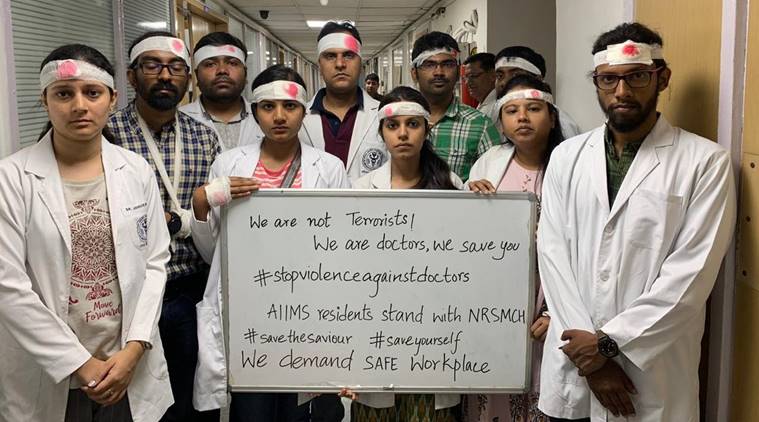 We are not Terrorists!
We are doctors, we save you
#stopviolenceagainstdoctors
AIIMS residents stand with NRSMCH
#savethesaviour #saveyourself
We demand SAFE Workplace
MOVE
Forward